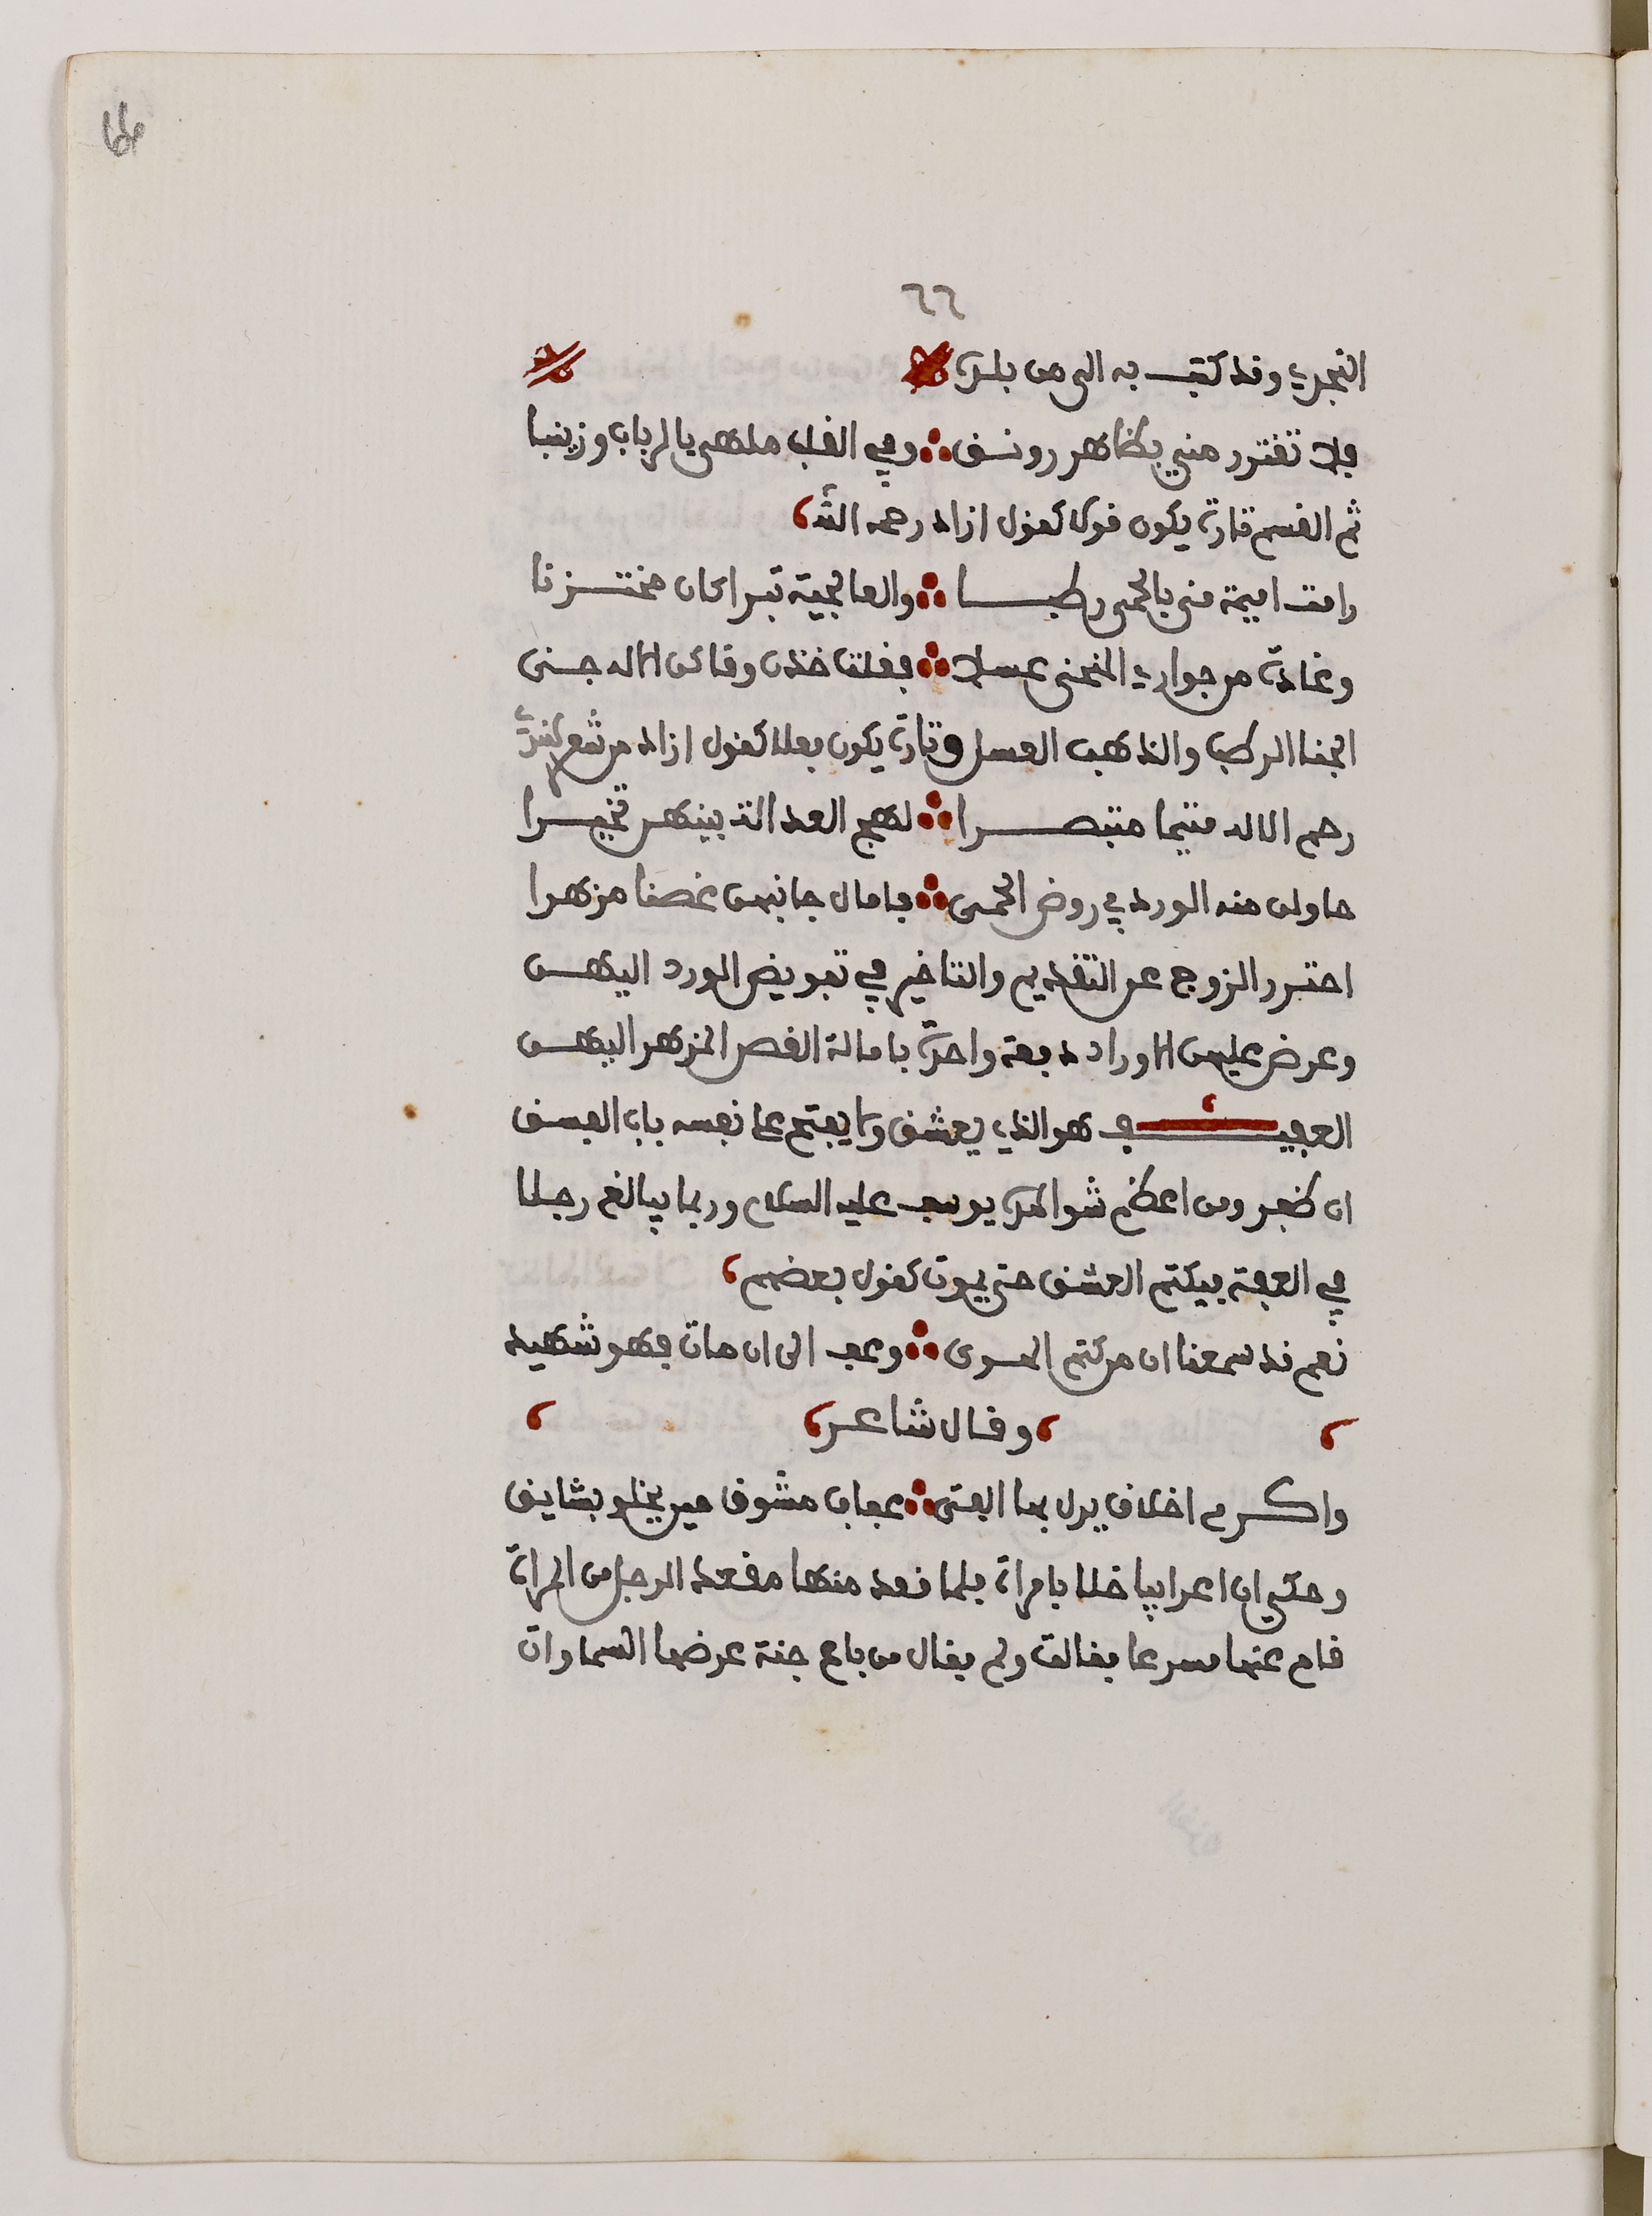 ٢٢
النجدي وقد كتب به الي من بلدة
فلا تغترر مني بظاهر رونق ؞ وفي القلب ملهى يالرباب وزينبا
ثم القسم تارة يكون قولا كقول ازاد رحمه الله
رامت اميمة منى بالحمى رطبا ؞ والعالجية تبرا كان مختزنا
وغادة من جواري المنحنى عسلا ؞ فقلت خذن وقاكن الاله جنى
الجنا الرطب والذهب العسل وتارة يكون فعلا كقول ازاد من شعر
رحم الاله متيما متبصرا ؞ لهج العدالة بينهن تخيرا
حاولن منه الورد في روض الحمى ؞ فامال جانبهن غصنا مزهرا
احترر الزوج عن التقديم والتاخير في تفويض الورد اليهن
وعرض عليهن الاوراد دفعة واحدة بامالة الغصن المزهر اليهن
العفيف هو الذي يعشق ولا يفتح على نفسه باب الفسق
ان ظفر ومن اعظم شواهده يوسف عليه السلام وربما يبالغ رجلا
في العفة فيكتم العشق حتى يموت كقول بعضهم
نعم قد سمعنا ان من كتم الهوى ؞ وعف الى ان مات فهو شهيد
وقال شاعر
واكرم اخلاق يدل بها الفتى ؞ عفاف مشوق حين يخلو بشايق
وحكي ان اعرابيا خلا بامراة فلما قعد منها مقعد الرجل من المراة
قام عنها مسرعا فقالت ولم فقال من باع جنة عرضها السماوات